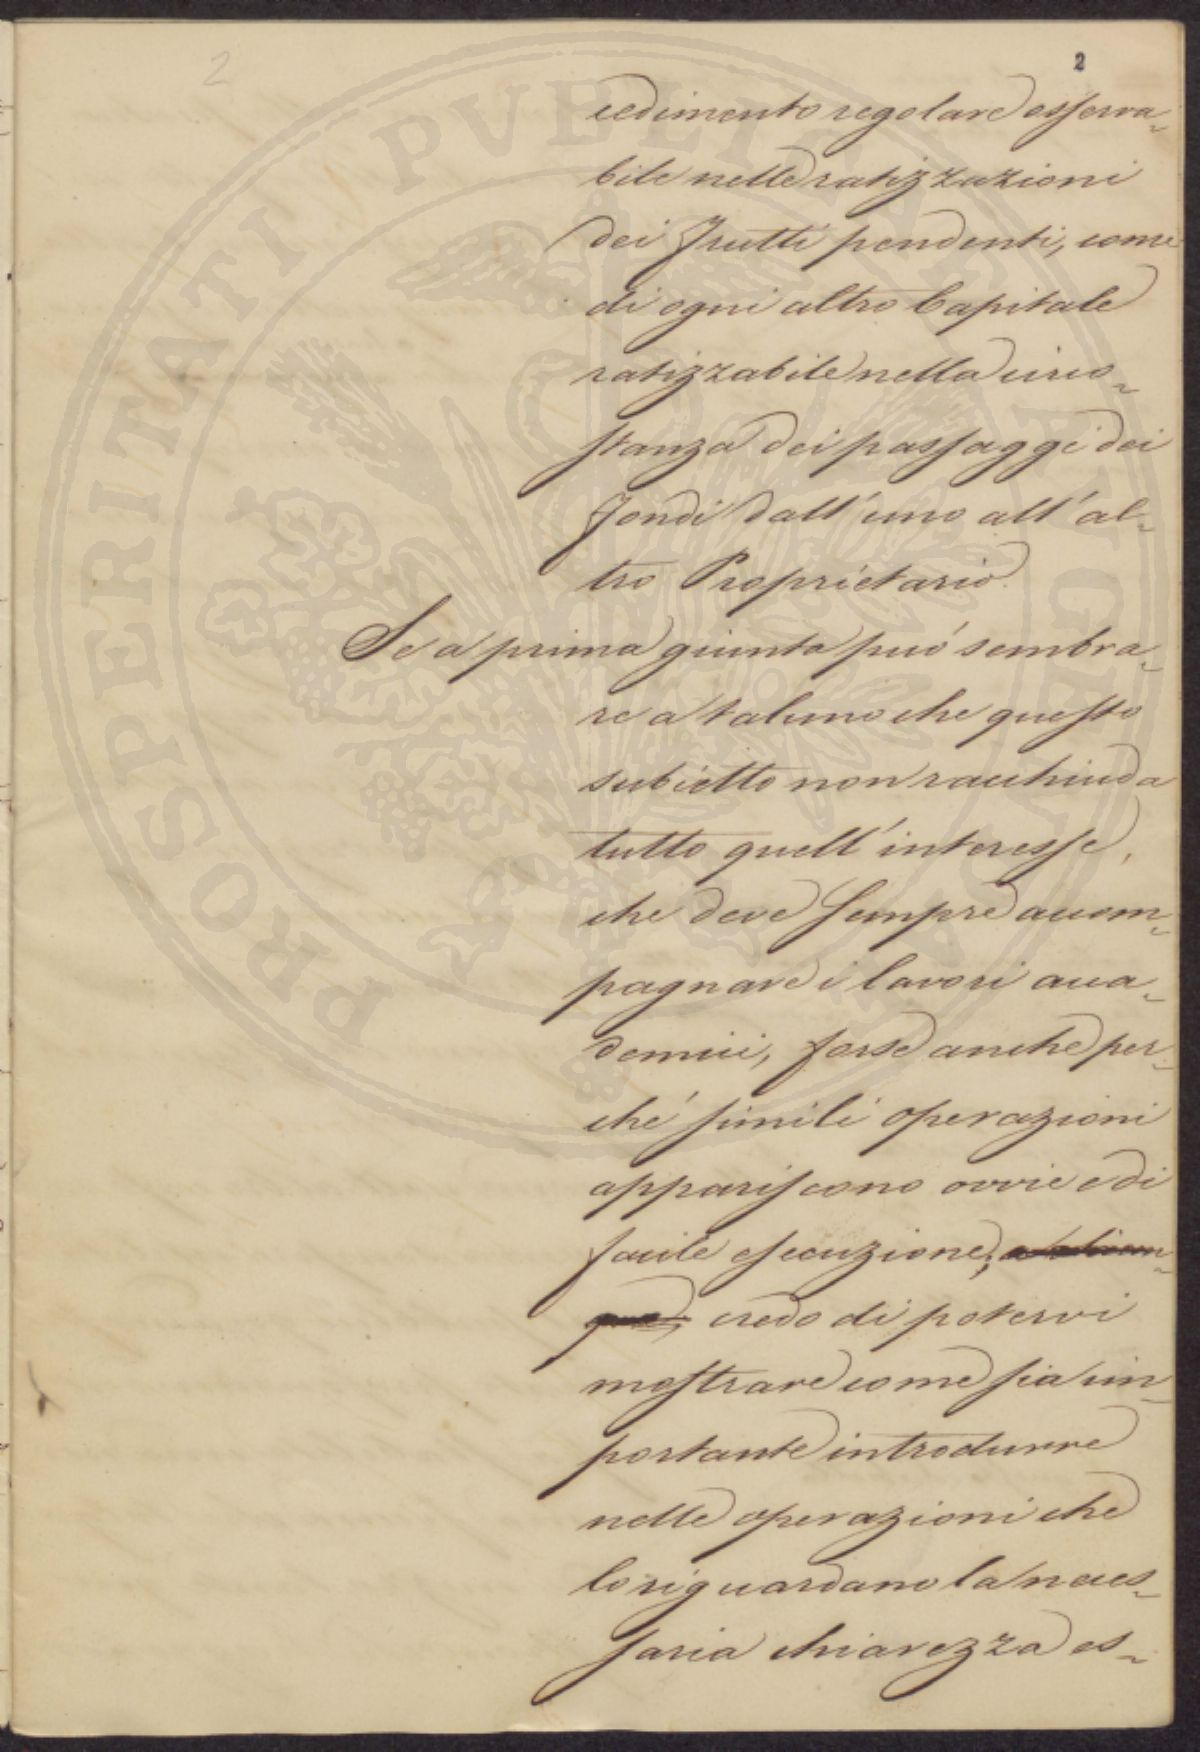 2
2
cedimento regolare osserva-
bile nelle ratizzazioni
dei Frutti pendenti, come
di ogni altro Capitale
ratizzabile nella circo-
stanza dei passaggi dei
Fondi dall'uno all'al-
tro Proprietario.
Se a prima giunta può sembra-
re a taluno che questo
subietto non racchiuda
tutto quell'interesse,
che deve sempre accom-
pagnare i lavori acca-
demici, forse anche per-
ché simili operazioni
appariscono ovvie e di
facile esecuzione;
credo di potervi
mostrare come sia im-
portante introdurre
nelle operazioni che
lo riguardano la neces-
saria chiarezza es-
PROSPERITATI PVBLICAE AVGENDAE